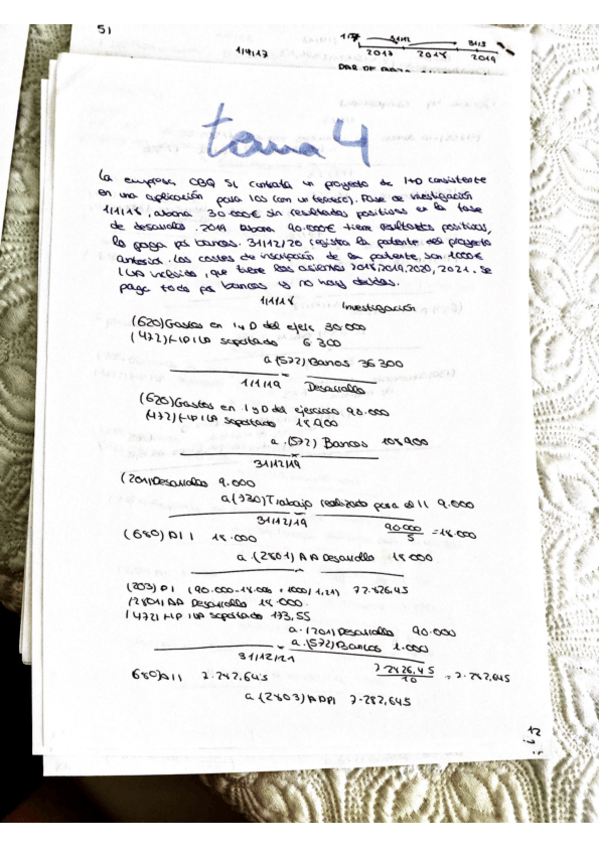 51
1/4/17
31/12
31/3
2017 2018 2019
tema 4
La empresa CBQ SL contrata un proyecto de I+D consistente
en una aplicación para IOS (con un tercero). Fase de investigación
1/1/18, abona 30.000€ sin resultados positivos en la fase
de desarrollo. 2019 abona 90.000€ tiene resultados positivos,
lo paga por bancos. 31/12/20 registra la patente del proyecto
anterior. Los costes de inscripción de la patente son 1000€
IVA incluido, que tiene los asientos 2018, 2019, 2020, 2021. Se
paga todo por bancos y no hay deudas.
1/1/18 Investigación
(620) Gastos en I y D del ejerc 30.000
(472) HP IVA soportado 6.300
a (572) Bancos 36.300
1/1/19 Desarrollo
(620) Gastos en I y D del ejercicio 90.000
(472) HP IVA soportado 18.900
a (572) Bancos 108.900
31/12/19
(201) Desarrollo 9.000
a (730) Trabajo realizado para el II 9.000
31/12/19 90.000/5 = 18.000
(680) AII 18.000
a (2801) AA Desarrollo 18.000
(203) PI (90.000-18.000 + 1000/1,21) 72.826,45
(2801) AA Desarrollo 18.000
(472) HP IVA soportado 173,55
a (201) Desarrollo 90.000
a (572) Bancos 1.000
31/12/21 72826,45/10 = 7.282,645
(680) AII 7.282,645
a (2803) AAPI 7.282,645
12